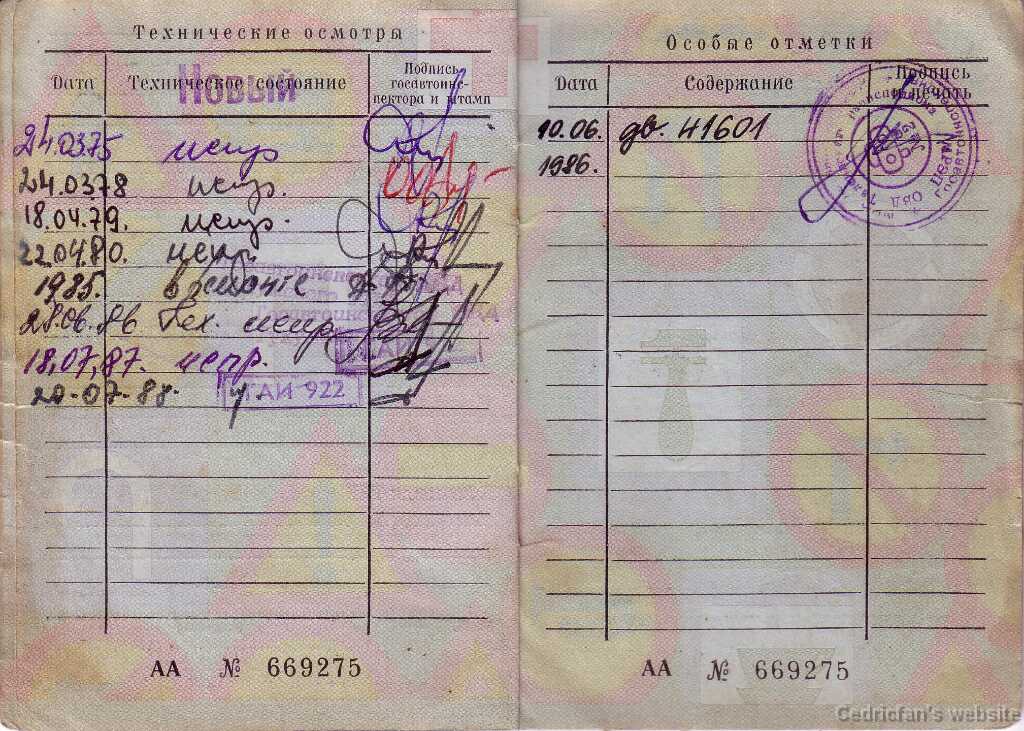 Технические осмотры
Дата Техническое состояние Подпись госавтоинс-пектора и штамп
Новый
24.03.75 испр
24.03.78 испр.
18.04.79. испр.
22.04.80. испр.
1985. в ремонте
28.06.86 Тех. испр.
18,07,87. испр.
20-07-88.
ГАИ 922
АА № 669275
Особые отметки
Дата Содержание Подпись и печать
10.06. дв. 41601
1986.
АА № 669275
Cedricfan's website